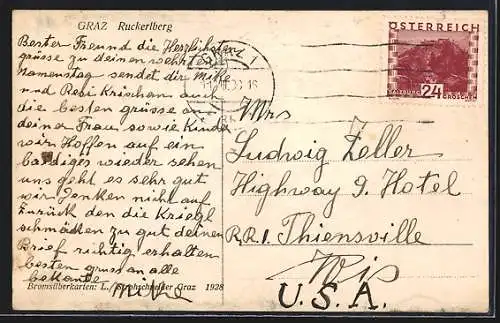 GRAZ Ruckerlberg
Bester Freund die Herzlichsten
grüsse zu deinen wehrten
Namenstag sendet dir Mike
und Resi Krischen auch
die besten grüsse an
deiner Frau sowie Kinder
wir Hoffen auf ein
baldiges wieder sehen
uns geht es sehr gut
wir denken nicht auf
zurück den die Kriegl
schmäcken zu gut deinen
Brief richtig erhalten
besten gruss an alle
bekante Mike
Bromsilberkarten: L. Strohschneider Graz 1928
ÖSTERREICH
SALZBURG
24
GROSCHEN
Mrs
Ludwig Zeller
Highway 9. Hotel
R.R.1. Thiensville
Wis
U.S.A.